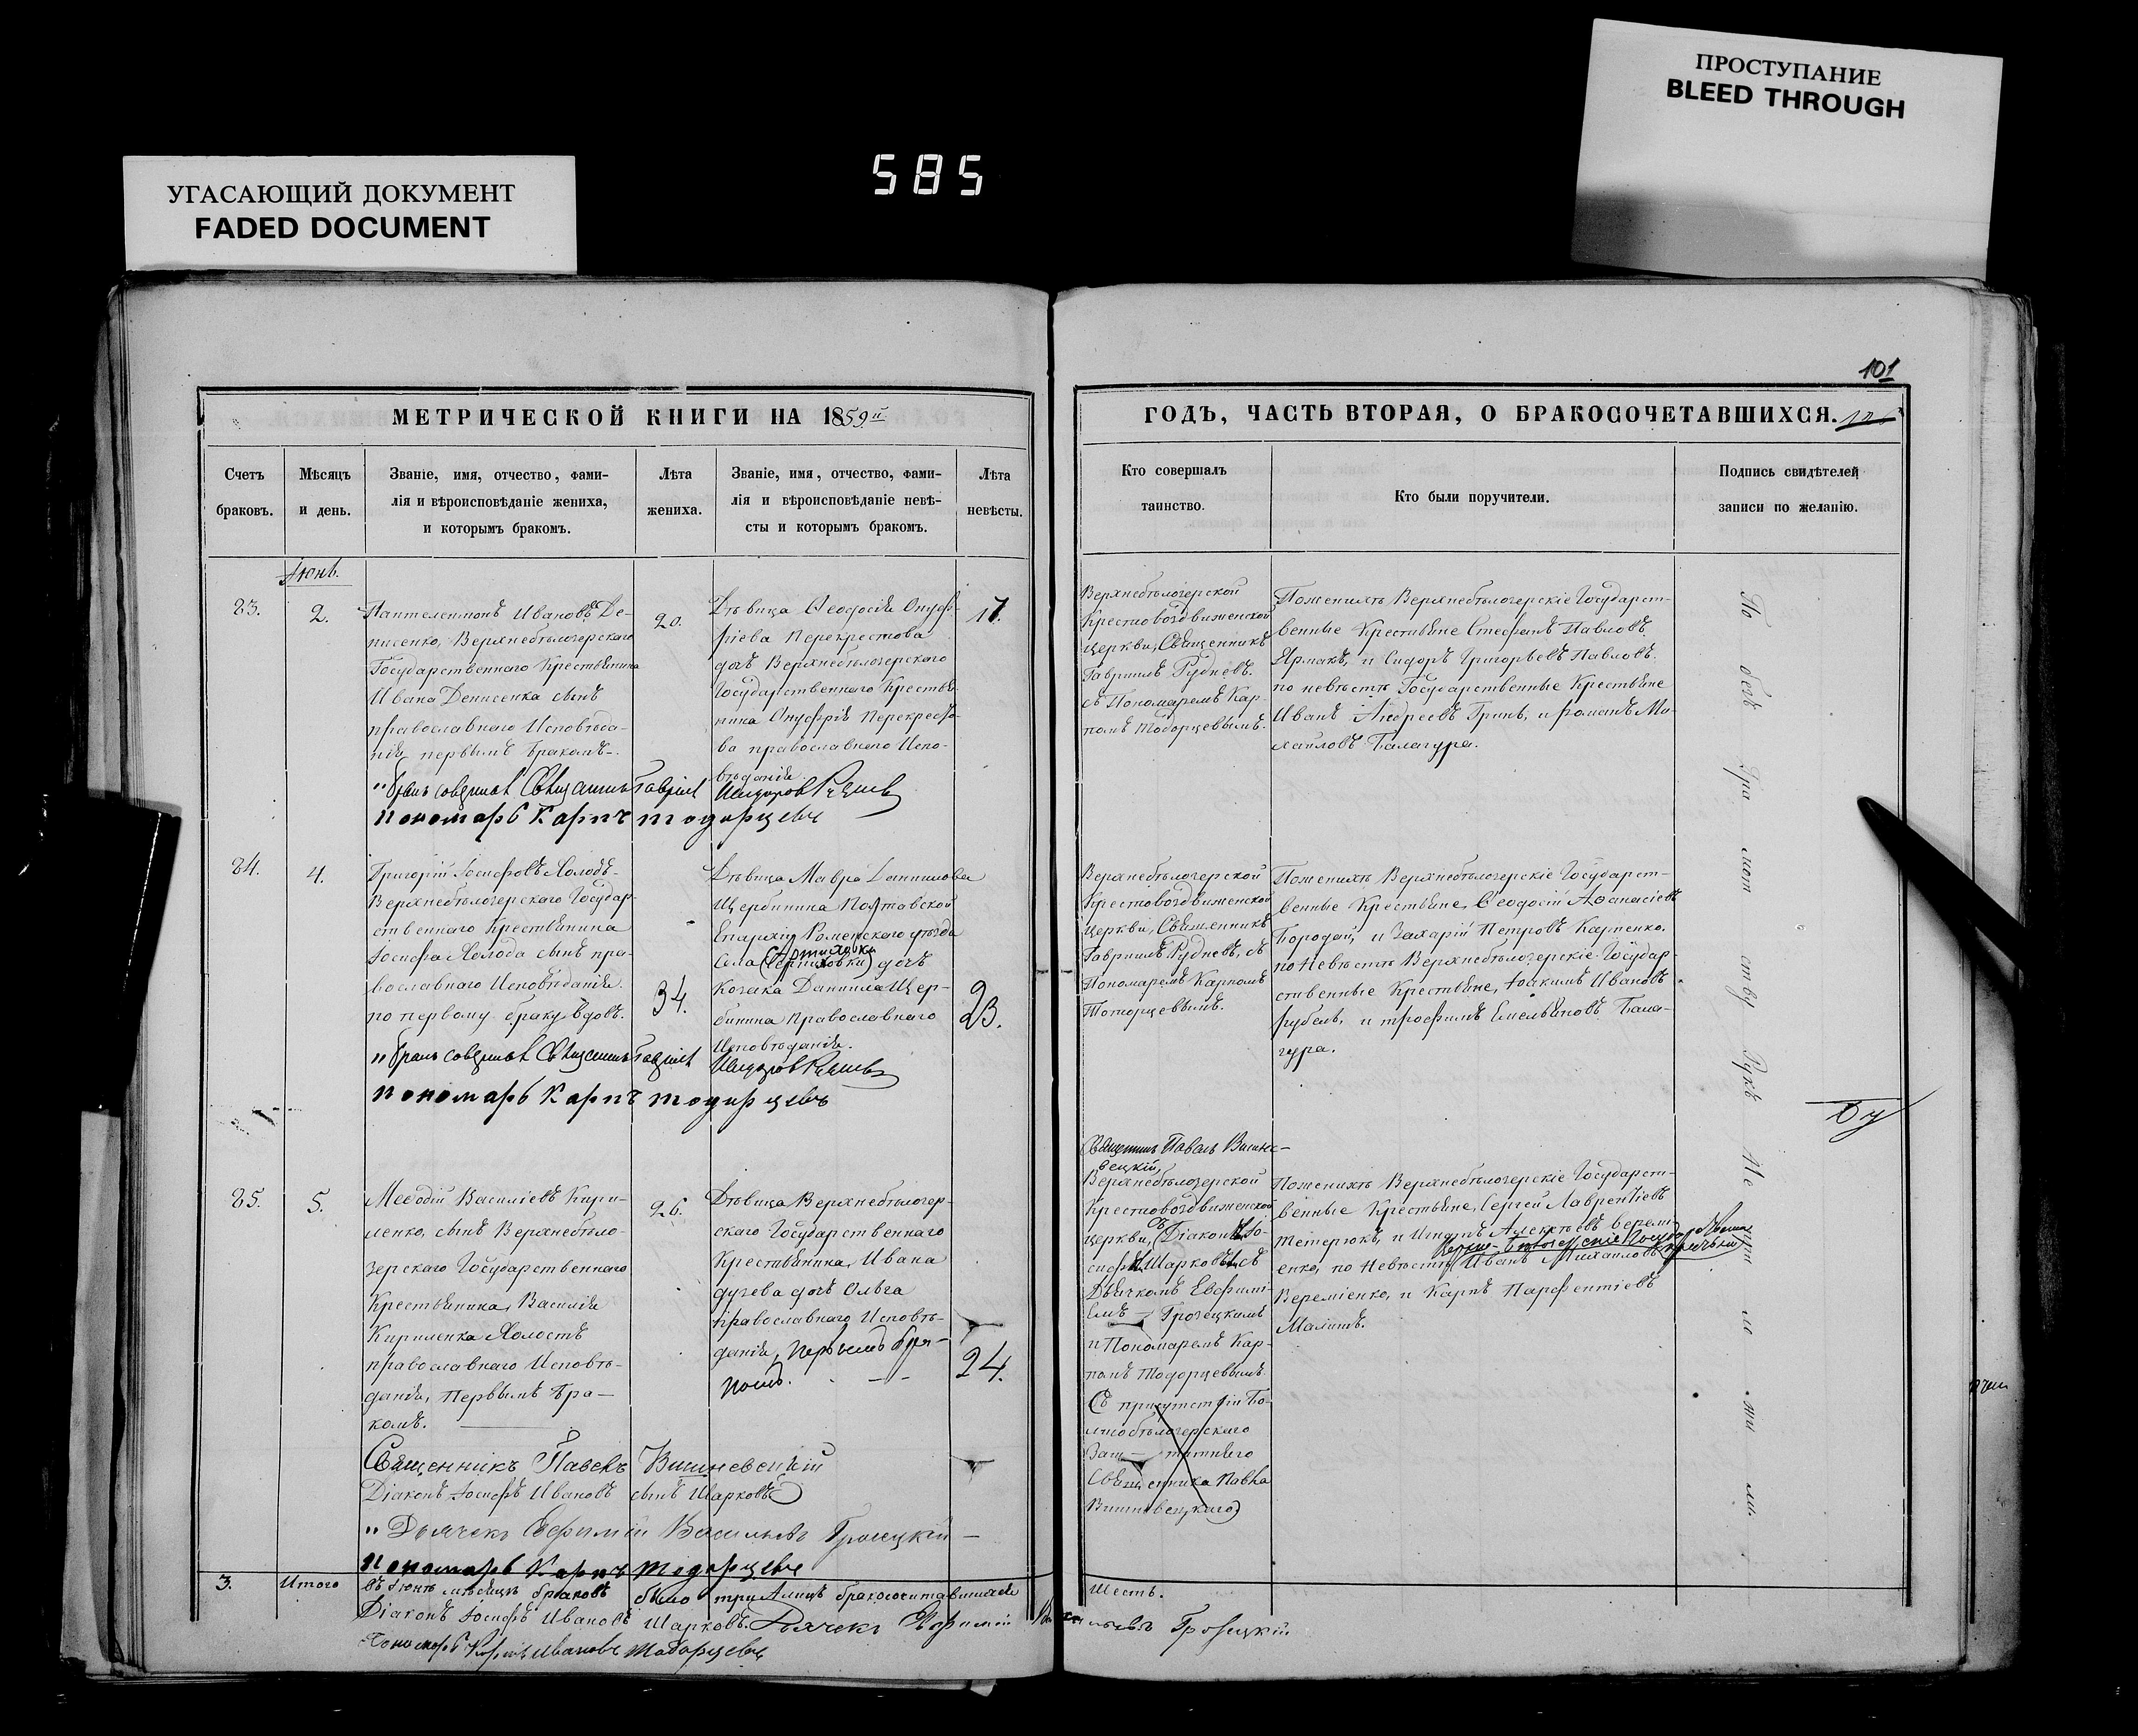 УГАСАЮЩИЙ ДОКУМЕНТ
FADED DOCUMENT
585
ПРОСТУПАНИЕ
BLEED THROUGH
101
МЕТРИЧЕСКОЙ КНИГИ НА 1859й
Счетъ
браковъ.
Мѣсяцъ
и день.
Званіе, имя, отчество, фами-
лія и вѣроисповѣданіе жениха,
и которымъ бракомъ.
Лѣта
жениха.
Званіе, имя, отчество, фами-
лія и вѣроисповѣданіе невѣ-
сты и которымъ бракомъ.
Лѣта
невѣсты.
ГОДЪ, ЧАСТЬ ВТОРАЯ, О БРАКОСОЧЕТАВШИХСЯ.
Кто совершалъ
таинство.
Кто были поручители.
Подпись свидѣтелей
записи по желанію.
Іюнь.
23.
2.
Пантелеимонъ Ивановъ Де-
нисенко, Верхнебѣлозерскаго
Государственнаго Крестьянина
Ивана Денисенка сынъ
православнаго Исповѣда-
нія первымъ бракомъ.
20.
Дѣвица Ѳеодосія Онуф-
ріева Перекрестова
дочь Верхнебѣлозерскаго
Государственнаго Крестья-
нина Онуфрія Перекресто-
ва православнаго Испо-
вѣданія
17.
Верхнебѣлозерской
Крестовоздвиженской
церкви, Священникъ
Гавріилъ Рудневъ.
съ Пономаремъ Кар-
помъ Тодорцевымъ.
Поженихѣ Верхнебѣлозерскіе Государст-
венные Крестьяне Стефанъ Павловъ
Ярмакъ, и Сидоръ Григорьевъ Павловъ.
по невѣстѣ Государственные Крестьяне
Иванъ Андреевъ Гринь, и Романъ Ми-
хайловъ Балагура.
Пономарь Карпъ Тодорцевъ
24.
4.
Григорій Іосифовъ Холодъ
Верхнебѣлозерскаго Государ-
ственнаго Крестьянина
Іосифа Холода сынъ пра-
вославнаго Исповѣданія.
по первому браку вдовъ.
34.
Дѣвица Мавра Даниилова
Щербинина Полтавской
Епархіи Роменскаго уѣзда
Села дочь
Козака Даниила Щер-
бинина Православнаго
Исповѣданія.
23.
Верхнебѣлозерской
Крестовоздвиженской
церкви, Священникъ
Гавріилъ Рудневъ, съ
Пономаремъ Карпомъ
Тоторцевымъ.
Поженихѣ Верхнебѣлозерскіе Государст-
венные Крестьяне, Ѳеодосій Аѳанасіевъ
Бородай, и Захарій Петровъ Карпенко.
по Невѣстѣ Верхнебѣлозерскіе Государ-
ственные Крестьяне, Іоакимъ Ивановъ
рубель, и трофимъ Емельяновъ Бала-
гура.
Пономарь Карпъ Тодорцевъ
25.
5.
Меѳодій Василіевъ Кири-
ленко, сынъ Верхнебѣло-
зерскаго Государственнаго
Крестьянина, Василія
Кириленка Холостъ
православнаго Исповѣ-
данія, Первымъ бра-
комъ.
26.
Дѣвица Верхнебѣлозер-
скаго Государственнаго
Крестьянина, Ивана
дугева дочь Ольга
православнаго Исповѣ-
данія, первымъ бра-
комъ.
24.
Священникъ Павелъ Вишне-
вецкій,
Верхнебѣлозерской
Крестовоздвиженской
церкви, съ Діакономъ Іо-
сифомъ Шарковымъ съ
Дьячкомъ Евфимі-
емъ Грозецкимъ
и Пономаремъ Кар-
помъ Тодорцевымъ.
Поженихѣ Верхнебѣлозерскіе Государст-
венные Крестьяне, Сергей Лаврентіевъ
Тетерюкъ, и Алексѣевъ Вереми-
енко, по Невѣстѣ Иванъ Михайловъ
Вереміенко, и Карпъ Парфентіевъ
Малишъ.
Священникъ Павелъ Вишневецкій
Діаконъ Іосифъ Ивановъ сынъ Шарковъ
Дьячекъ Ефимій Васильевъ Грозецкій
Пономарь Карпъ Тодорцевъ
3.
Итого
въ Іюнѣ мѣсяцѣ браковъ было три А лицъ бракосочитавшихся
Шесть.
Діаконъ Іосифъ Ивановъ Шарковъ. Дьячекъ Ефимій Васильевъ Грозецкій
Пономарь Карпъ Ивановъ Тодорцевъ